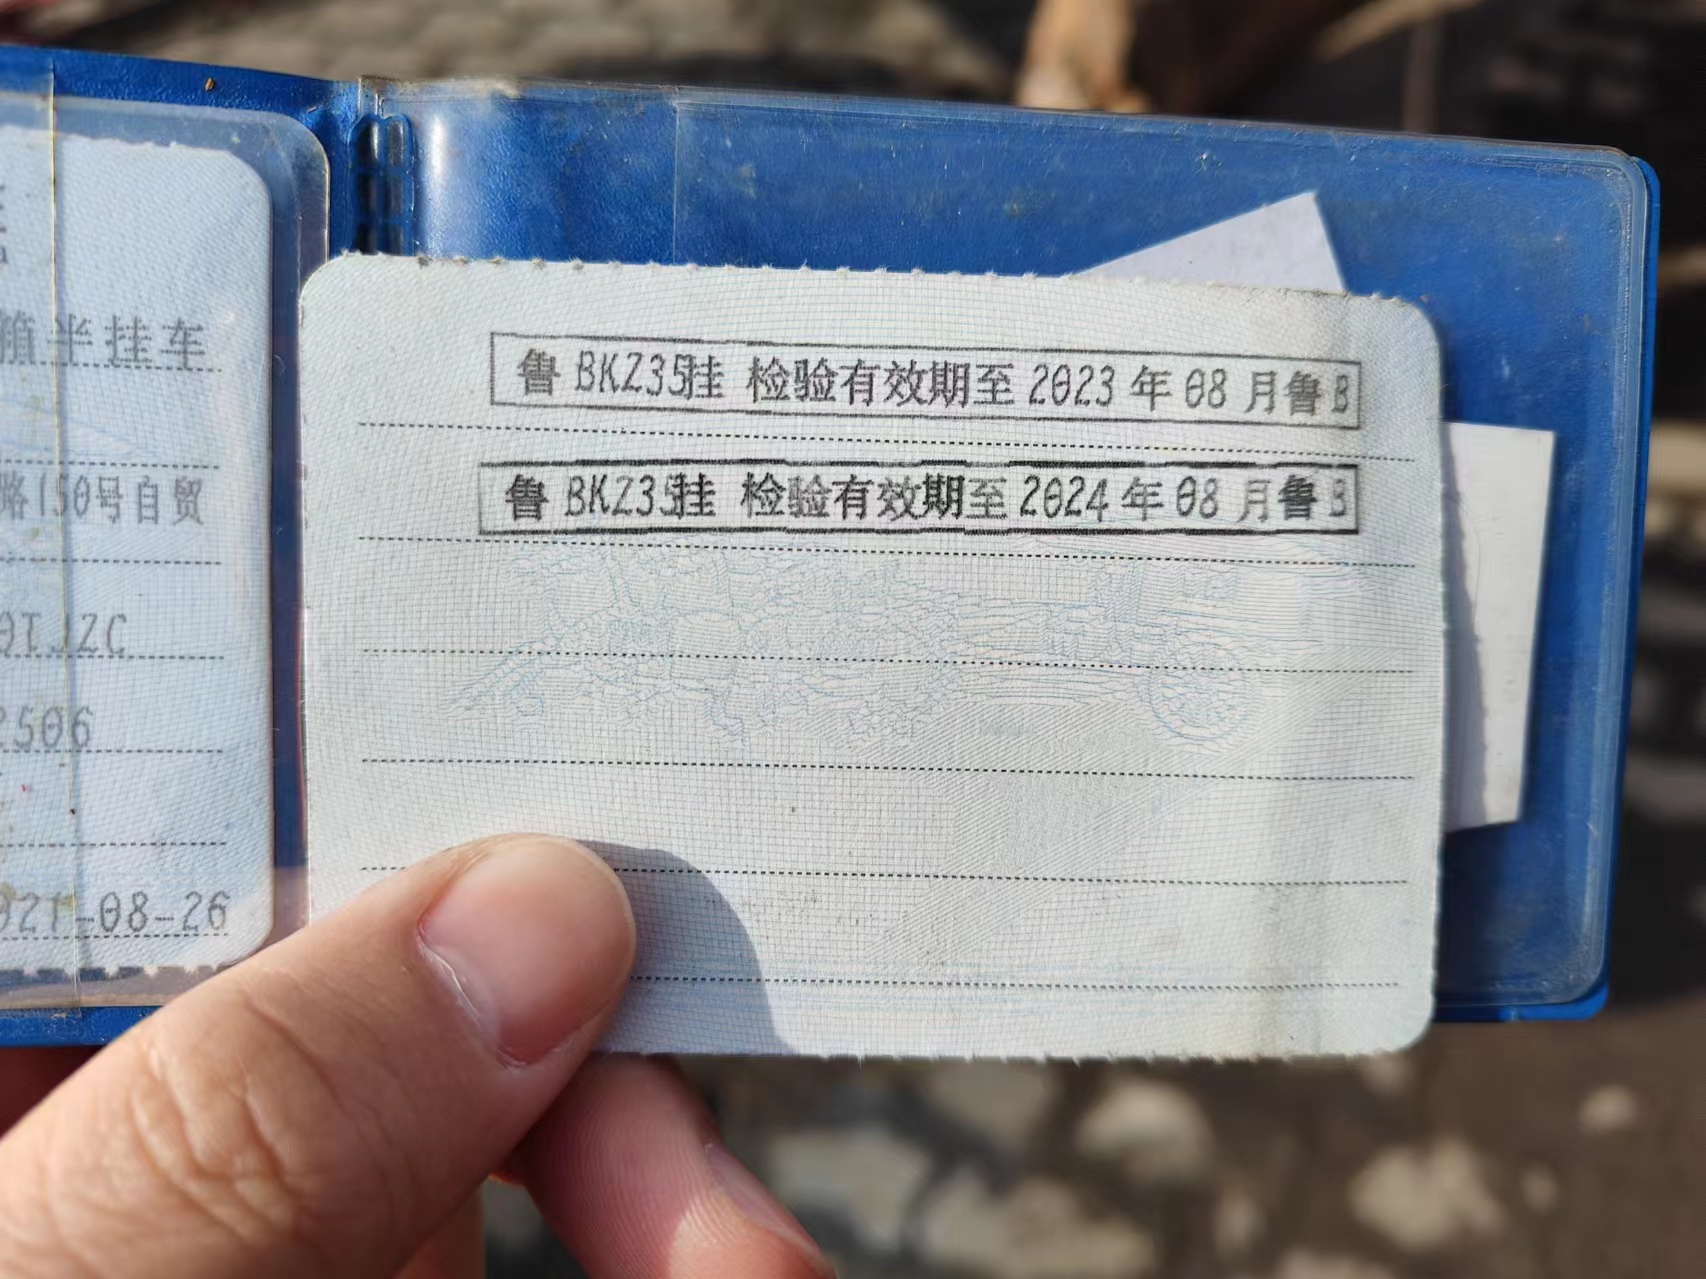 箱半挂车
路150号自贸
2506
021-08-26
鲁 BKZ35挂 检验有效期至 2023 年 08 月鲁 B
鲁 BKZ35挂 检验有效期至 2024 年 08 月鲁 B